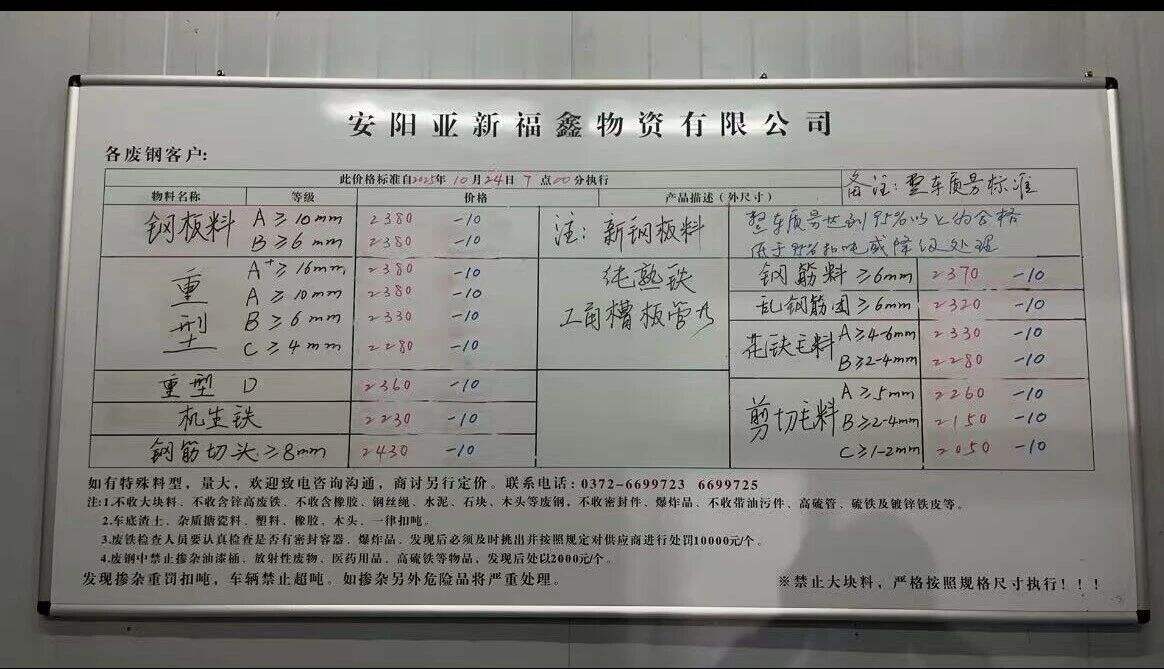 安阳亚新福鑫物资有限公司
各废钢客户:
此价格标准自2025年10月24日7点00分执行
备注:整车质另标准
物料名称 等级 价格 产品描述(外尺寸)
钢板料 A≥10mm 2380 -10
B≥6mm 2380 -10
重型 A+≥16mm 2380 -10
A≥10mm 2380 -10
B≥6mm 2330 -10
C≥4mm 2280 -10
重型 D 2360 -10
机生铁 2230 -10
钢筋切头≥8mm 2430 -10
注:新钢板料
纯熟铁
工角槽板管
整车质另达到95%以上为合格
低于95%扣吨或降级处理
钢筋料≥6mm 2370 -10
乱钢筋团≥6mm 2320 -10
花铁毛料 A≥4-6mm 2330 -10
B≥2-4mm 2280 -10
剪切毛料 A≥5mm 2260 -10
B≥2-4mm 2150 -10
C≥1-2mm 2050 -10
如有特殊料型,量大,欢迎致电咨询沟通,商讨另行定价。联系电话:0372-6699723 6699725
注:1.不收大块料、不收含锌高废铁、不收含橡胶、钢丝绳、水泥、石块、木头等废钢,不收密封件、爆炸品、不收带油污件、高硫管、硫铁及镀锌铁皮等。
2.车底渣土、杂质搪瓷料、塑料、橡胶、木头、一律扣吨。
3.废铁检查人员要认真检查是否有密封容器、爆炸品、发现后必须及时挑出并按照规定对供应商进行处罚10000元/个。
4.废钢中禁止掺杂油漆桶、放射性废物、医药用品、高硫铁等物品,发现后处以2000元/个。
发现掺杂重罚扣吨,车辆禁止超吨。如掺杂另外危险品将严重处理。
※禁止大块料,严格按照规格尺寸执行!!!